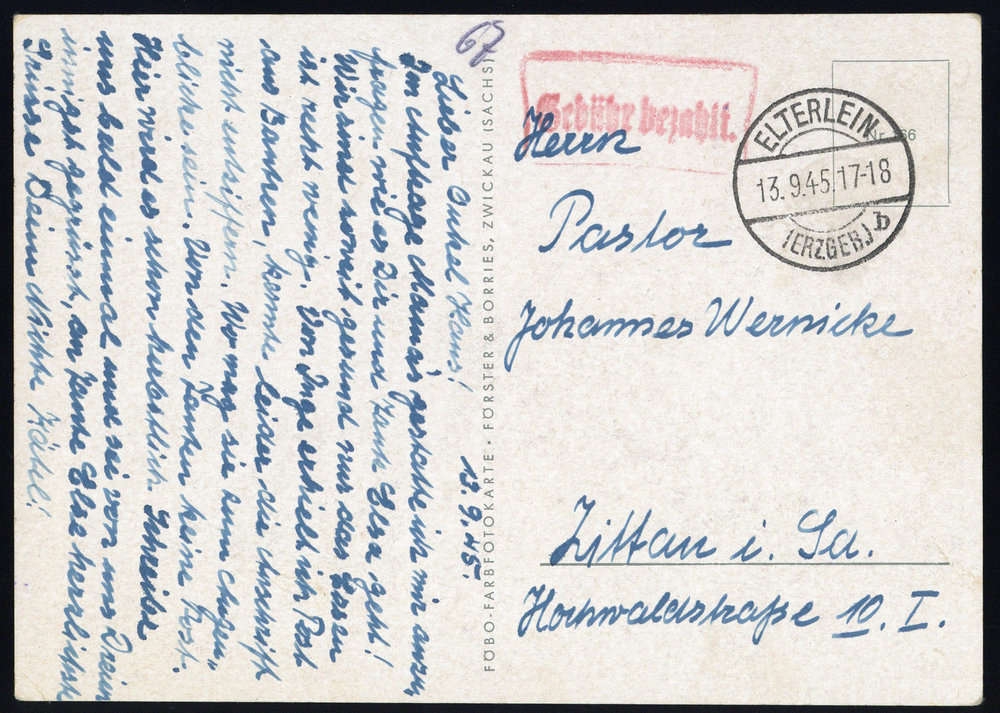 67
Lieber Onkel Hans! 13.9.45.
Im Auftrage Mama's gestatte ich mir anzu-
fragen wie es Dir und Tante Else geht!
Wir sind soweit gesund nur das Essen
ist recht wenig. Von Inge erhielt ich Post
aus Bautzen, konnte leider die Anschrift
nicht entziffern. Wo mag sie zum
blich sein. Von den Zanken keine Post.
Hier wird es schon herbstlich. Schreibe
uns bald einmal und sei von uns Dreien
innigst gegrüsst, an Tante Else herzlichste
Grüsse Deine Nichte Kätel!
FÖBO-FARBFOTOKARTE · FÖRSTER & BORRIES, ZWICKAU (SACHS)
Gebühr bezahlt.
ELTERLEIN
13.9.45.17-18
(ERZGEB.) b
Nr. 66
Herrn
Pastor
Johannes Wernicke
Zittau i. Sa.
Hochwaldstraße 10. I.